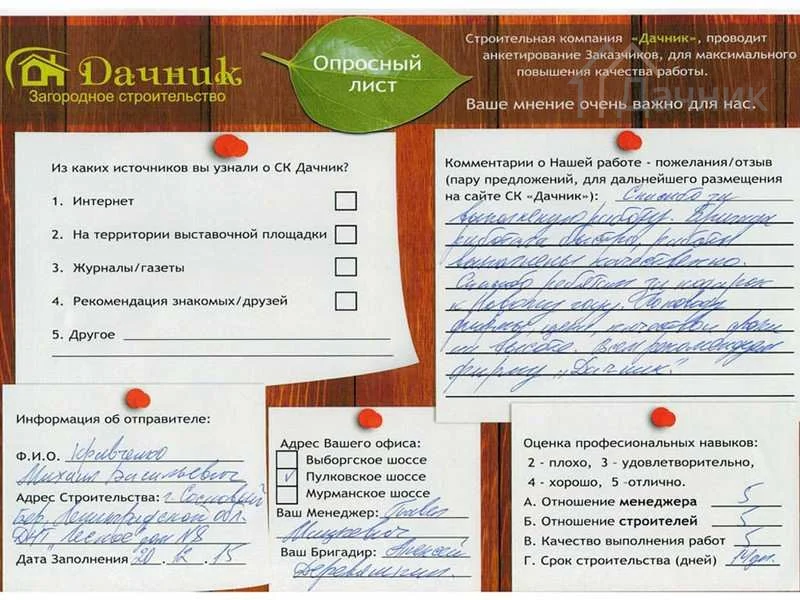 Дачник
Загородное строительство
Опросный
лист
Строительная компания «Дачник», проводит
анкетирование Заказчиков, для максимального
повышения качества работы.
Ваше мнение очень важно для нас.
Дачник
Из каких источников вы узнали о СК Дачник?
1. Интернет
2. На территории выставочной площадки
3. Журналы/газеты
4. Рекомендация знакомых/друзей
5. Другое
Комментарии о Нашей работе - пожелания/отзыв
(пару предложений, для дальнейшего размещения
на сайте СК «Дачник»): Спасибо за
выполненую работу. Бригада
работала быстро, работы
выполнены качественно.
Спасибо ребятам за подарок
к Новому году. По поводу
фирмы, цены, качество
на высоте. Всем рекомендую
фирму „Дачник".
Информация об отправителе:
Ф.И.О. Кравченко
Михаил Васильевич
Адрес Строительства: г. Сосновый
Бор, Ленинградской обл.
ДНТ "Лесное" дом №8
Дата Заполнения 20. 12. 15
Адрес Вашего офиса:
Выборгское шоссе
√ Пулковское шоссе
Мурманское шоссе
Ваш Менеджер: Павел
Мицкевич
Ваш Бригадир: Алексей
Деревяшкин.
Оценка професиональных навыков:
2 - плохо, 3 - удовлетворительно,
4 - хорошо, 5 -отлично.
А. Отношение менеджера 5
Б. Отношение строителей 5
В. Качество выполнения работ 5
Г. Срок строительства (дней) 14дн.